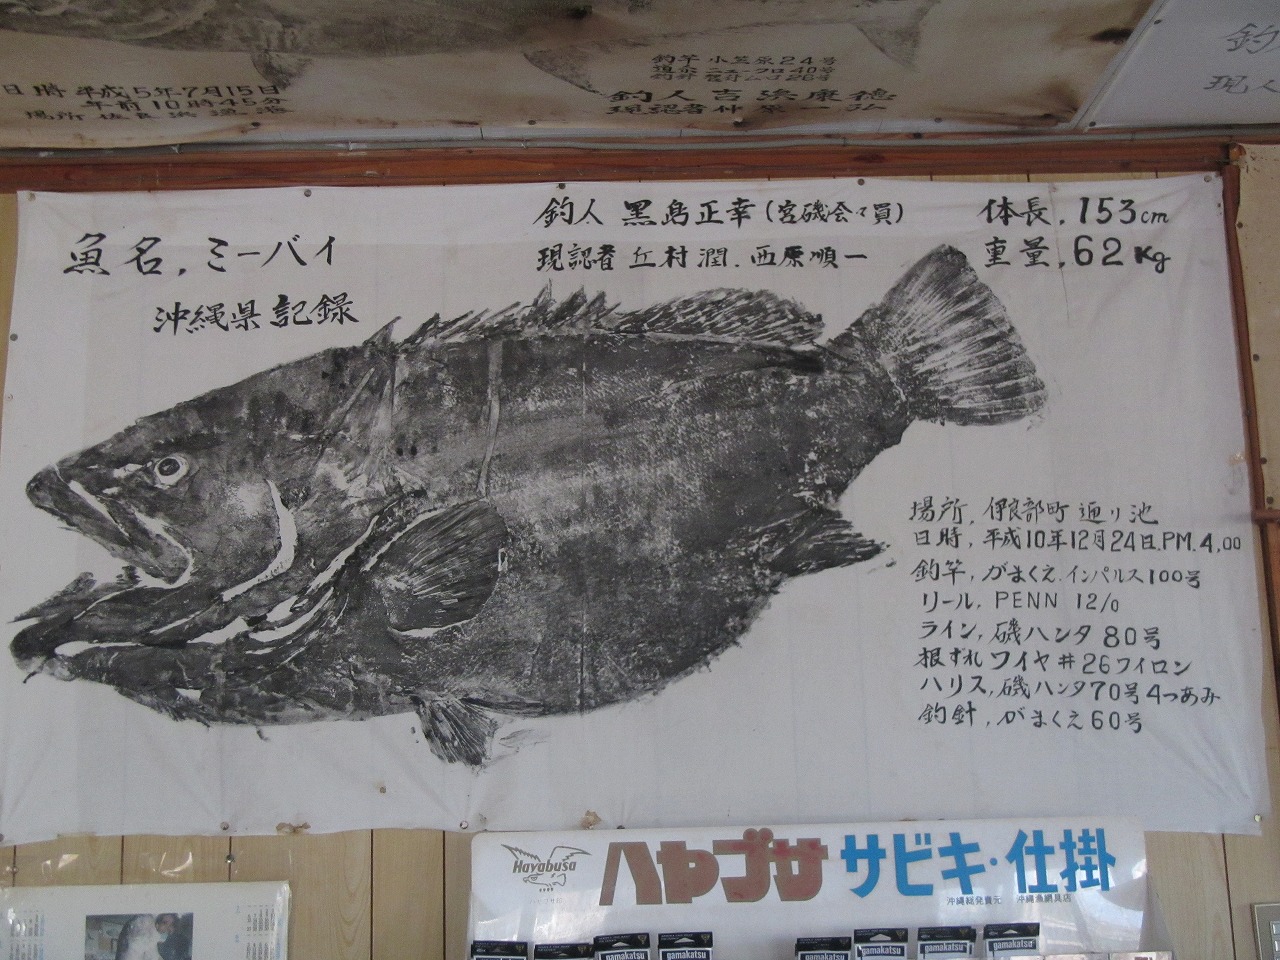 日時 平成5年7月15日
午前10時45分
場所 佐良浜漁港
釣竿 小笠原24号
釣人 吉浜康徳
現認者 仲宗一弘
釣
現人
魚名, ミーバイ
沖縄県記録
釣人 黒島正幸(宮磯会々員)
現認者 丘村潤. 西原順一
体長, 153cm
重量, 62Kg
場所, 伊良部町 通り池
日時, 平成10年12月24日.PM.4,00
釣竿, がまくえ.インパルス100号
リール. PENN 12/0
ライン, 磯ハンタ 80号
根ずれ ワイヤ#26ワイロン
ハリス, 磯ハンタ70号4つあみ
釣針, がまくえ60号
Hayabusa
ハヤブサ サビキ・仕掛
沖縄総発賣元 沖縄漁網具店
gamakatsu
gamakatsu
gamakatsu
gamakatsu
gamakatsu
gamakatsu